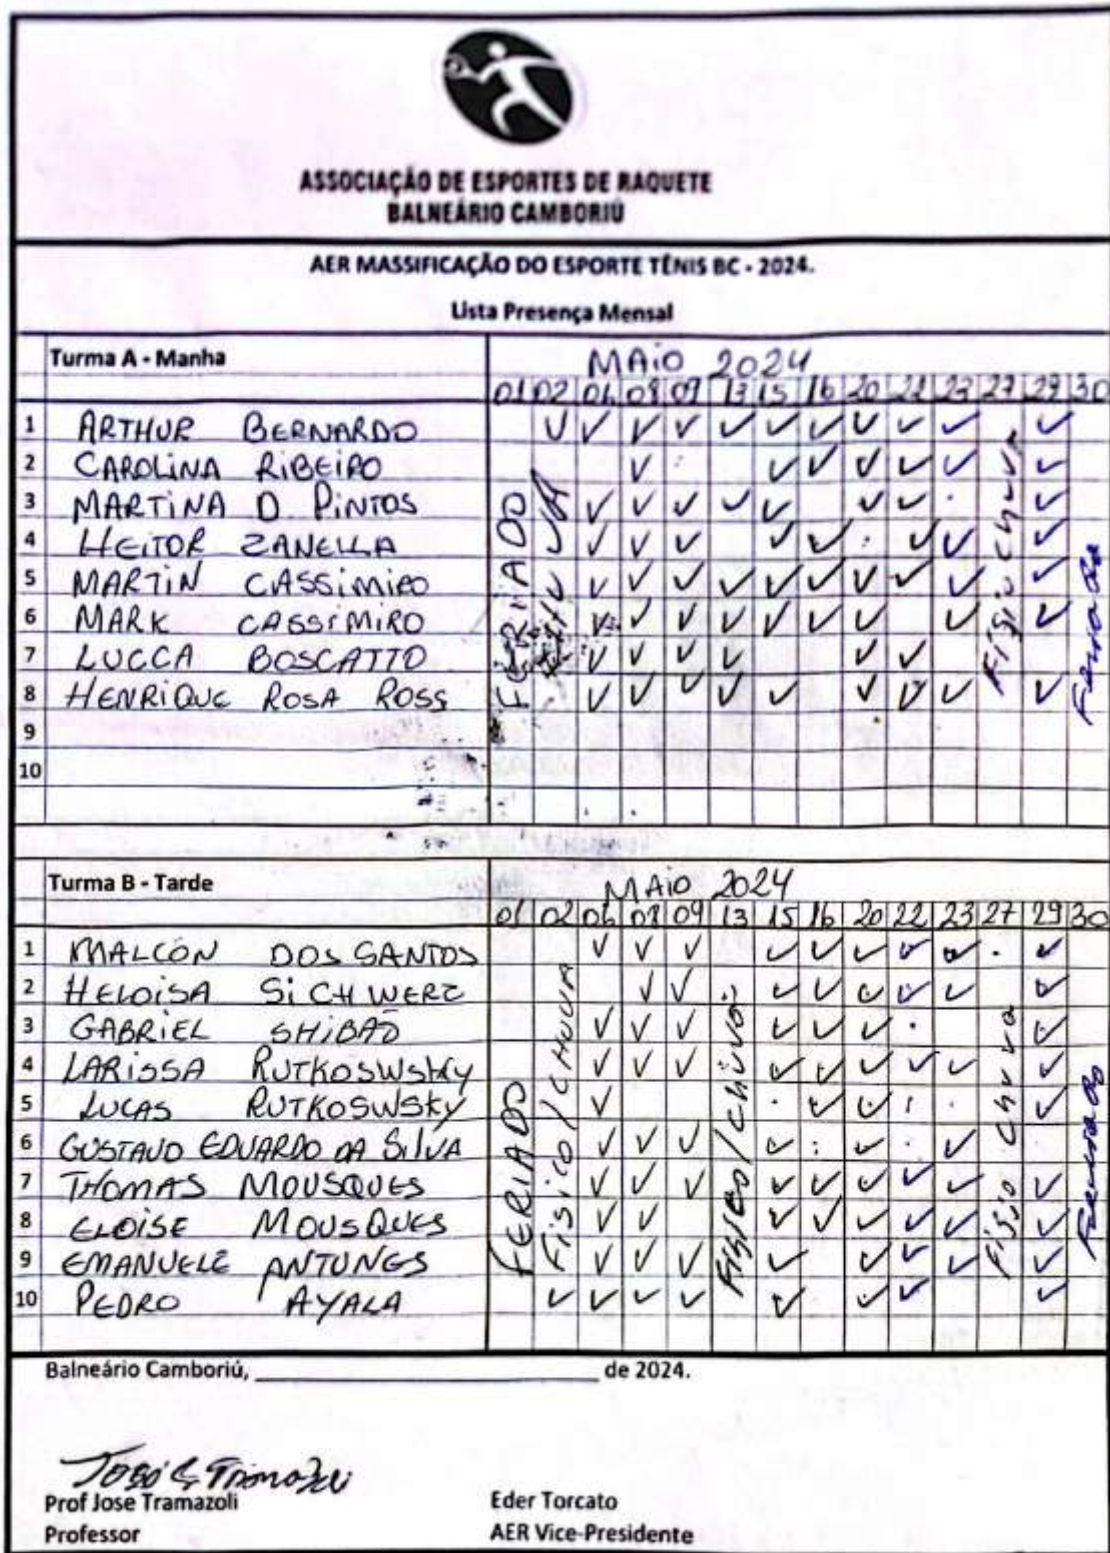 ASSOCIAÇÃO DE ESPORTES DE RAQUETE
BALNEÁRIO CAMBORIÚ
AER MASSIFICAÇÃO DO ESPORTE TÊNIS BC - 2024.
Lista Presença Mensal
Turma A - Manha MAIO 2024
01 02 06 08 09 13 15 16 20 22 23 27 29 30
1 ARTHUR BERNARDO ✓ ✓ ✓ ✓ ✓ ✓ ✓ ✓ ✓ ✓ ✓
2 CAROLINA RIBEIRO ✓ ✓ ✓ ✓ ✓ ✓ ✓
3 MARTINA D. PINTOS ✓ ✓ ✓ ✓ ✓ ✓ ✓ ✓
4 HEITOR ZANELLA ✓ ✓ ✓ ✓ ✓ ✓ ✓ ✓
5 MARTIN CASSIMIRO ✓ ✓ ✓ ✓ ✓ ✓ ✓ ✓ ✓ ✓
6 MARK CASSIMIRO ✓ ✓ ✓ ✓ ✓ ✓ ✓ ✓ ✓
7 LUCCA BOSCATTO ✓ ✓ ✓ ✓ ✓ ✓
8 HENRIQUE ROSA ROSS ✓ ✓ ✓ ✓ ✓ ✓ ✓ ✓ ✓
9
10
FERIADO
CHUVA
Fisio Chuva
Feriado
Turma B - Tarde MAIO 2024
01 02 06 08 09 13 15 16 20 22 23 27 29 30
1 MALCON DOS SANTOS ✓ ✓ ✓ ✓ ✓ ✓ ✓ ✓ ✓
2 HELOISA SICHWERZ ✓ ✓ ✓ ✓ ✓ ✓ ✓ ✓
3 GABRIEL SHIBAO ✓ ✓ ✓ ✓ ✓ ✓ ✓
4 LARISSA RUTKOSWSKY ✓ ✓ ✓ ✓ ✓ ✓ ✓ ✓ ✓
5 LUCAS RUTKOSWSKY ✓ ✓ ✓ ✓
6 GUSTAVO EDUARDO DA SILVA ✓ ✓ ✓ ✓ ✓ ✓
7 THOMAS MOUSQUES ✓ ✓ ✓ ✓ ✓ ✓ ✓ ✓ ✓
8 ELOISE MOUSQUES ✓ ✓ ✓ ✓ ✓ ✓ ✓ ✓
9 EMANUELE ANTUNES ✓ ✓ ✓ ✓ ✓ ✓ ✓ ✓
10 PEDRO AYALA ✓ ✓ ✓ ✓ ✓ ✓ ✓ ✓
FERIADO
Fisico/CHUVA
Fisico/Chuva
Fisio Chuva
Feriado
Balneário Camboriú, ______ de 2024.
Prof Jose Tramazoli
Professor
Eder Torcato
AER Vice-Presidente